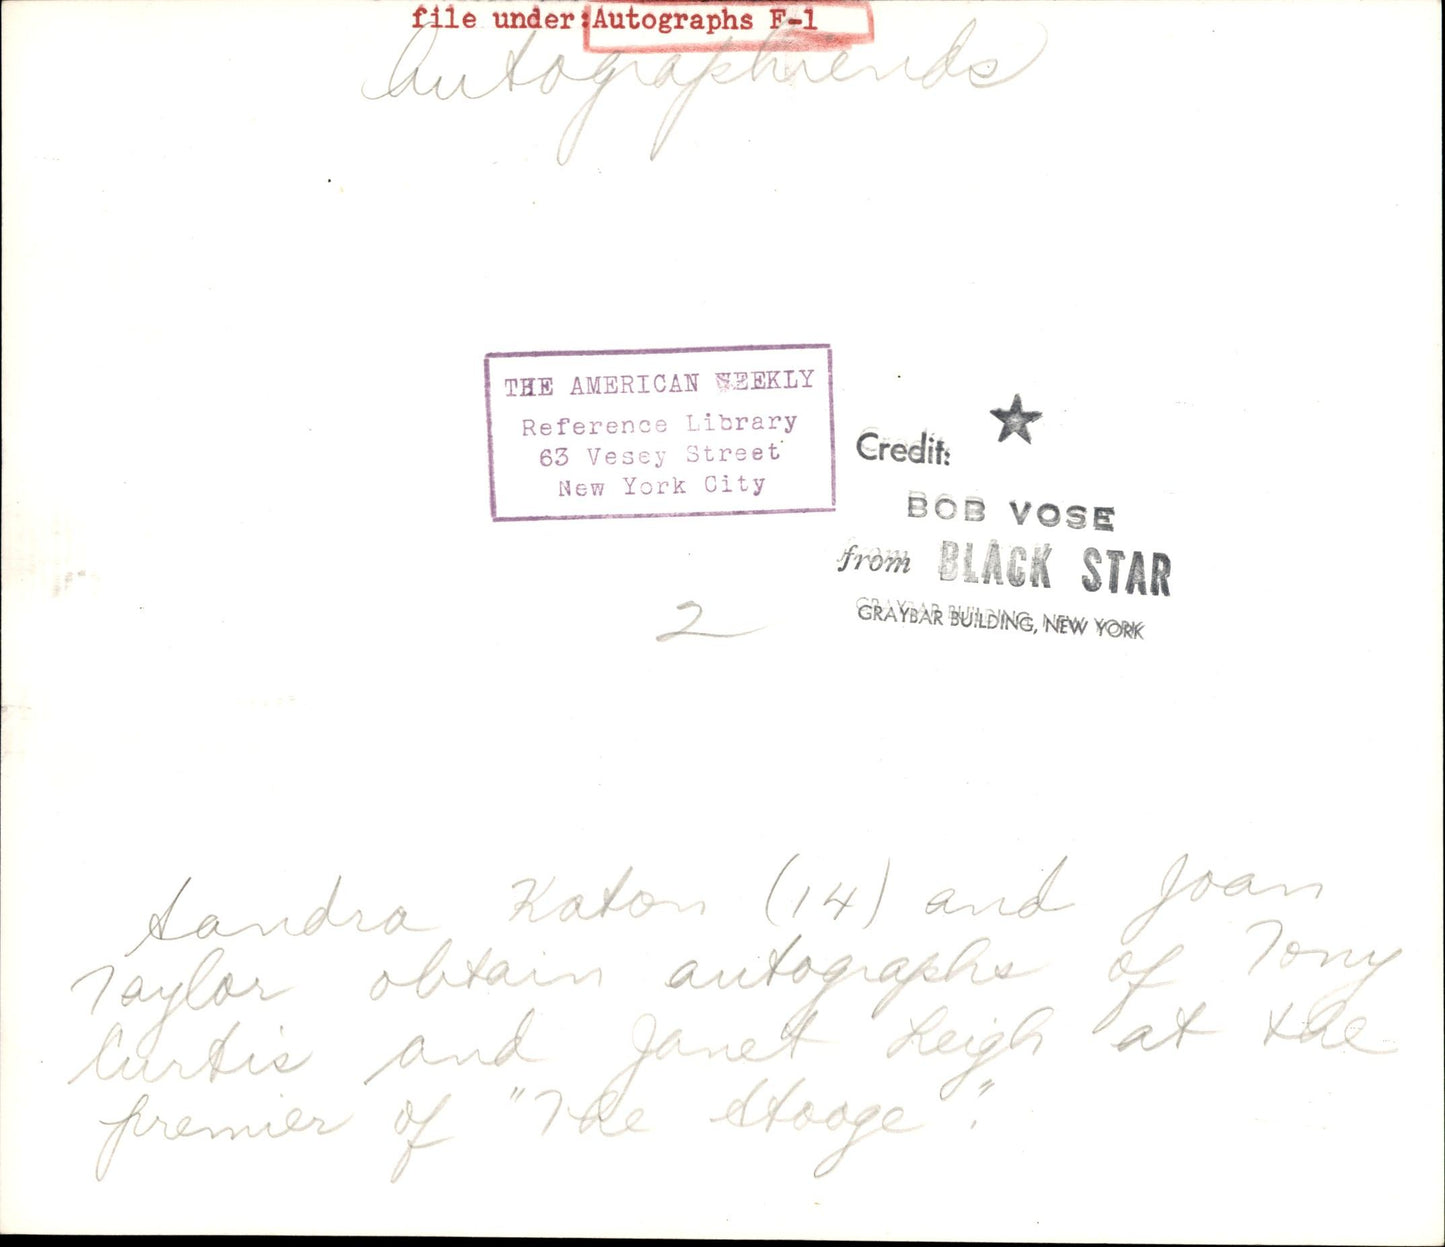 file under: Autographs F-1
Autographiends
THE AMERICAN WEEKLY
Reference Library
63 Vesey Street
New York City
Credit:
BOB VOSE
from BLACK STAR
GRAYBAR BUILDING, NEW YORK
2
Sandra Katon (14) and Joan
Taylor obtain autographs of Tony
Curtis and Janet Leigh at the
premier of "The Stooge".